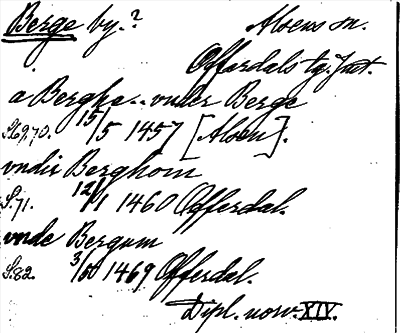 Berge by.? Alsens sn.
Offerdals tg. Jmt.
a Bergha.. vnder Berge
S.69,70. 15/5 1457 [Alsen].
vndir Berghom
S.71. 12/1 1460 Offerdal.
vnde Bergum
S.82. 3/10 1469 Offerdal.
Dipl. norv. XIV.